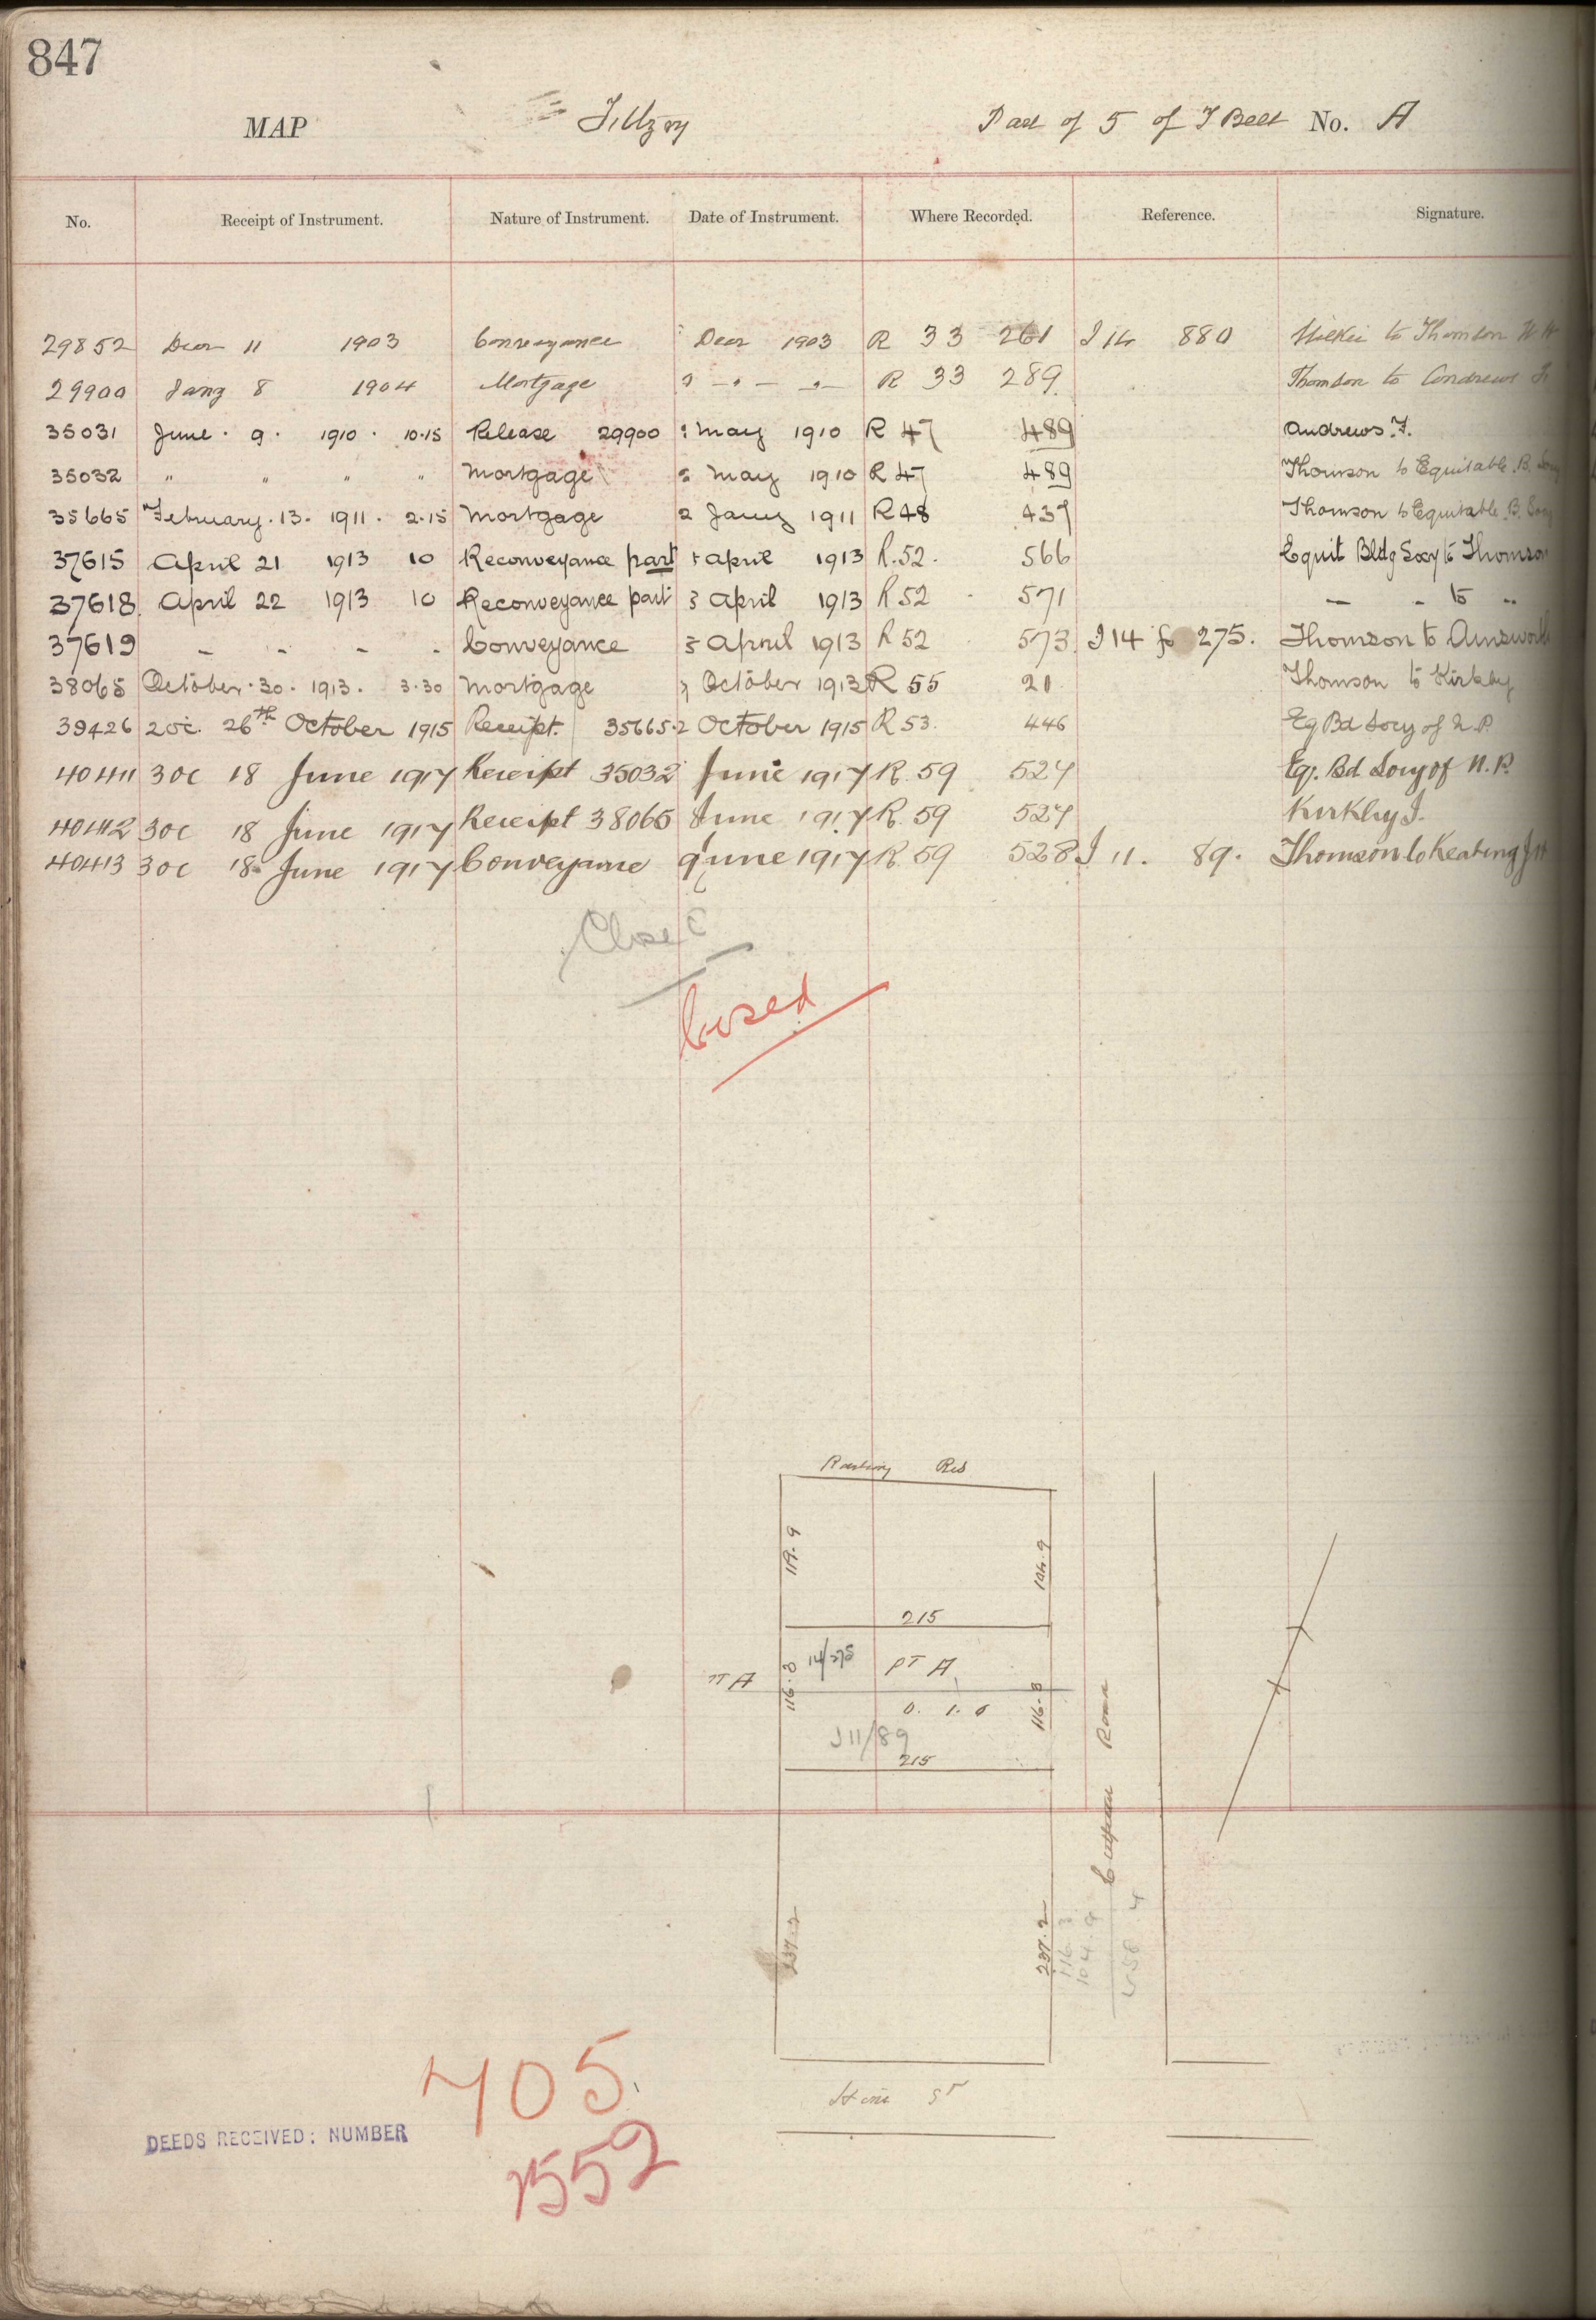 847
MAP Fitzroy Part of 5 of T Belt No. A
No. Receipt of Instrument. Nature of Instrument. Date of Instrument. Where Recorded. Reference. Signature.
29852 Decr 11 1903 Conveyance Decr 1903 R 33 261 J 14 880 to Thomson
29900 Jany 8 1904 Mortgage R 33 289. Thomson to Andrews
35031 June. 9. 1910. 10.15 Release 29900 May 1910 R 47 489 Andrews. F.
35032 " " " " Mortgage May 1910 R 47 489 Thomson to Equitable. B. Socy
35665 February. 13. 1911. 2.15 Mortgage 2 Jany 1911 R 48 437 Thomson to Equitable. B. Socy
37615 April 21 1913 10 Reconveyance part April 1913 R. 52. 566 Equit Bldg Socy to Thomson
37618 April 22 1913 10 Reconveyance part 3 April 1913 R 52 571 – - to "
37619 - - - - Conveyance 5 April 1913 R 52 573 J 14 fo 275. Thomson to Ainsworth
38065 October. 30. 1913. 3.30 Mortgage October 1913 R 55 21 Thomson to Kirkby
39426 2 oc. 26th October 1915 Receipt. 35665. 2 October 1915 R 53. 446 Eq Bd Socy of N. P.
40411 3 oc 18 June 1917 Receipt 35032 June 1917 R. 59 527 Eq. Bd Socy of N. P.
40412 3 oc 18 June 1917 Receipt 38065 June 1917 R. 59 527 Kirkby J.
40413 3 oc 18 June 1917 Conveyance 9 June 1917 R. 59 528 J 11. 89. Thomson to Keating J H
Closed
Closed
Railway Res
119.9
104.9
215
14/275 PT A
PT A
116.3
116.3
0. 1. 6
J 11/89
215
Road
237.2
237.2
116.3
104.9
458.4
St
705
DEEDS RECEIVED: NUMBER
1552